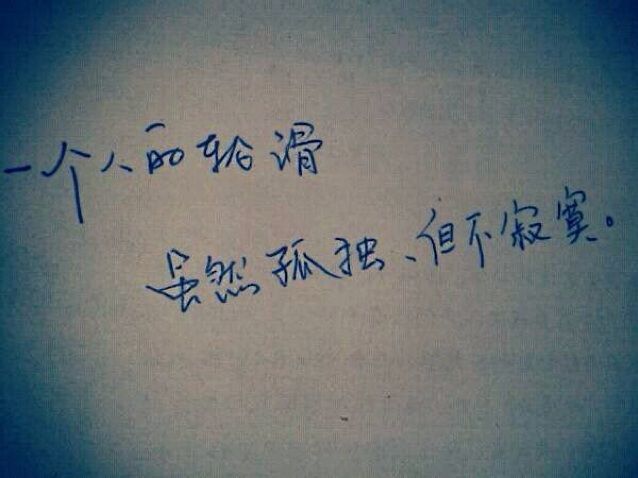 一个人的轮滑
虽然孤独、但不寂寞。